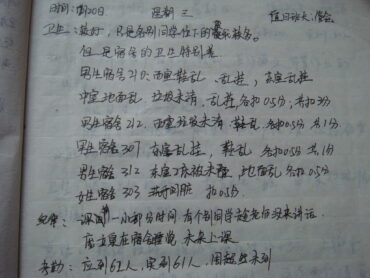 时间: 月30日 星期三 值日班长:
卫生: 较好, 只是各别同学位下的
但是宿舍的卫生特别差.
男生宿舍210: 西室鞋乱、乱挂, 东室乱挂
中室地面乱 垃圾未清、乱挂 各扣0.5分; 共扣3分
男生宿舍 212. 西室垃圾未清 鞋乱 各扣0.5分 共1分.
男生宿舍 307 东室乱挂, 鞋乱 各扣0.5分. 共1分
男生宿舍 312 东室 床被未叠, 地面乱 各扣0.5分
女生宿舍 303 脏 扣0.5分
纪律: 课 一小部分时间 有个别同学趁老师没来讲话.
在宿舍睡觉 未来上课
考勤: 应到62人, 实到61人, 未到